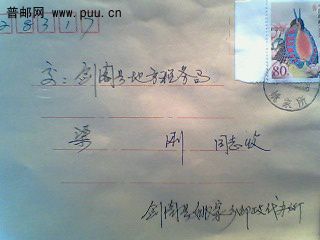 普邮网
www.puu.cn
628317
80
交：剑阁县地方税务局
梁 刚 同志收
剑阁县姚家乡邮政代办所